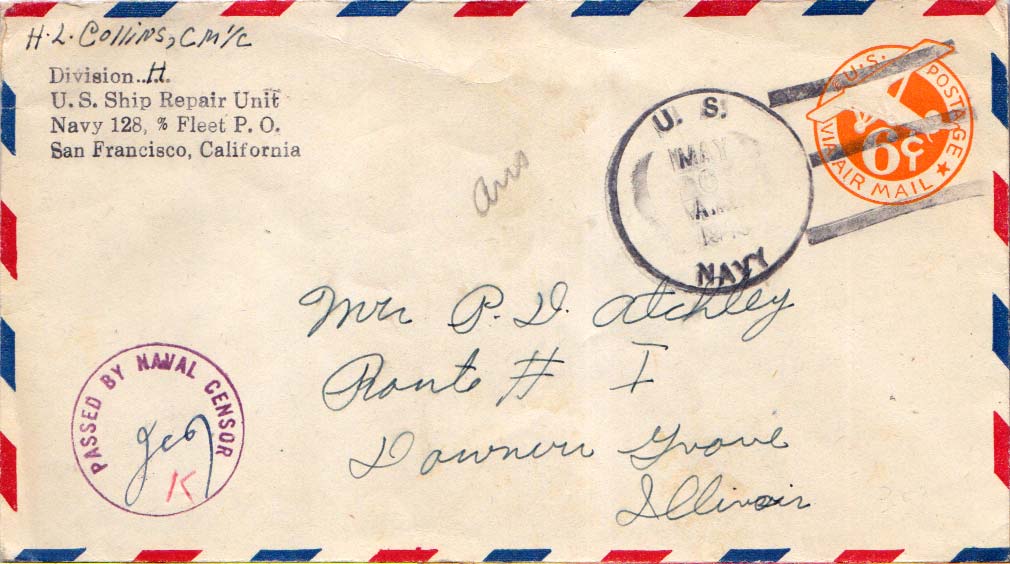 H. L. Collins, CM1/c
Division H.
U. S. Ship Repair Unit
Navy 128, % Fleet P. O.
San Francisco, California
U. S.
MAY
A.M.
NAVY
U.S. POSTAGE
6¢
VIA AIR MAIL
Ans
Mrs P. D. Atchley
Route # I
Downers Grove
Illinois
PASSED BY NAVAL CENSOR
K